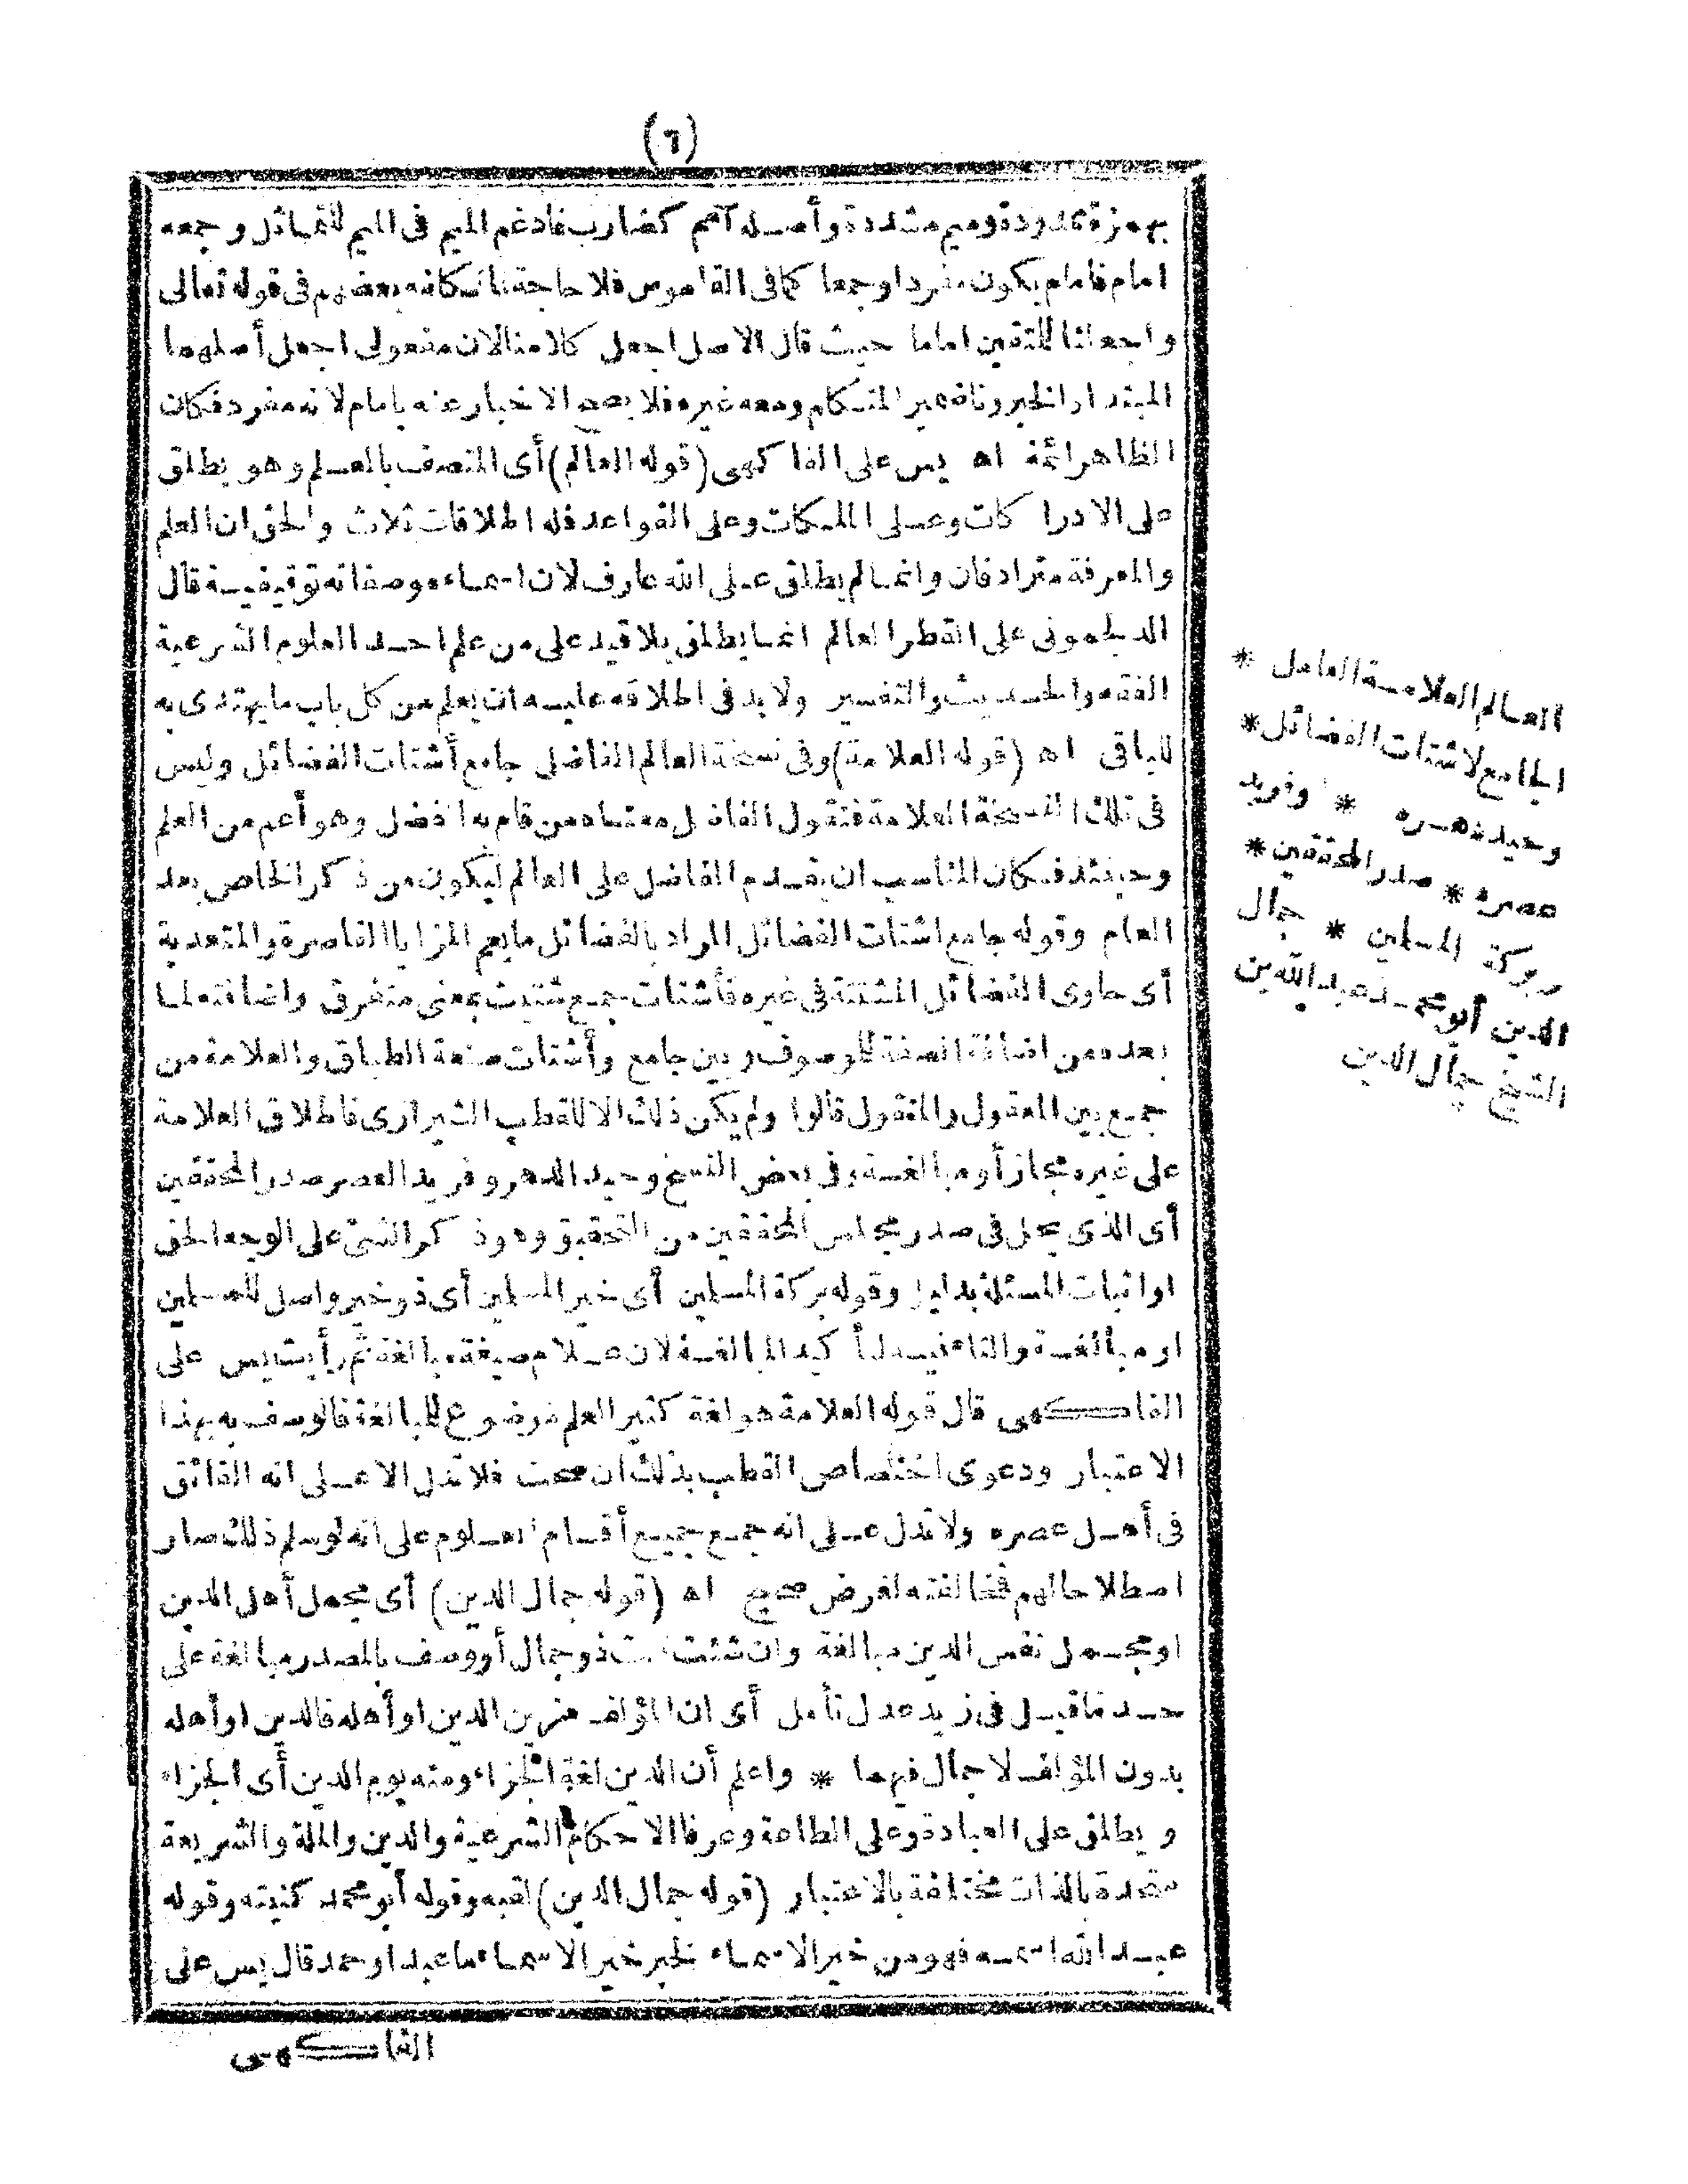 (٦)
بهمزة ممدودة وميم مشددة وأصله آمم كضارب فادغم الميم فى الميم للتماثل وجمعه
امام فامام يكون مفردا وجمعا كما فى القاموس فلا حاجة لما تكلفه بعضهم فى قوله تعالى
واجعلنا للمتقين اماما حيث قال الاصل اجعل كلا منا لان مفعولى اجعل أصلهما
المبتدا والخبر ونا ضمير المتكلم ومعه غيره فلا يصح الاخبار عنه بامام لانه مفرد فكان
الظاهر ائمة اه يس على الفاكهى (قوله العالم) أى المتصف بالعلم وهو يطلق
على الادراكات وعلى الملكات وعلى القواعد فله اطلاقات ثلاث والحق ان العلم
والمعرفة مترادفان وانما لم يطلق على الله عارف لان اسماءه وصفاته توقيفية قال
الدلجمونى على القطر العالم انما يطلق بلا قيد على من علم احد العلوم الشرعية
الفقه والحديث والتفسير ولا بد فى اطلاقه عليه ان يعلم من كل باب ما يهتدى به
للباقى اه (قوله العلامة) وفى نسخة العالم الفاضل جامع أشتات الفضائل وليس
فى تلك النسخة العلامة فنقول الفاضل معناه من قام به الفضل وهو أعم من العلم
وحينئذ فكان المناسب ان يقدم الفاضل على العالم ليكون من ذكر الخاص بعد
العام وقوله جامع اشتات الفضائل المراد بالفضائل ما يعم المزايا القاصرة والمتعدية
أى حاوى الفضائل المشتتة فى غيره فأشتات جمع شتيت بمعنى متفرق واضافته لما
بعده من اضافة الصفة للموصوف وبين جامع وأشتات صنعة الطباق والعلامة من
جمع بين المعقول والمنقول قالوا ولم يكن ذلك الا للقطب الشيرازى فاطلاق العلامة
على غيره مجاز أو مبالغة وفى بعض النسخ وحيد الدهر وفريد العصر صدر المحققين
أى الذى يحل فى صدر مجلس المحققين من التحقيق وهو ذكر الشئ على الوجه الحق
او اثبات المسئلة بدليل وقوله بركة المسلمين أى خير المسلمين أى ذو خير واصل للمسلمين
او مبالغة والتاء فيه لتأكيد المبالغة لان علام صيغة مبالغة ثم رأيت يس على
الفاكهى قال قوله العلامة هو لغة كثير العلم موضوع للمبالغة فالوصف به بهذا
الاعتبار ودعوى اختصاص القطب بذلك ان صحت فلا تدل الا على انه الفائق
فى أهل عصره ولا تدل على انه جمع جميع أقسام العلوم على انه لو سلم ذلك صار
اصطلاحا لهم فمخالفته لغرض صحيح اه (قوله جمال الدين) أى مجمل أهل الدين
او مجمل نفس الدين مبالغة وان شئت قلت ذو جمال أو وصف بالمصدر مبالغة على
حد ما قيل فى زيد عدل تأمل أى ان المؤلف مزين الدين او أهله فالدين او أهله
بدون المؤلف لا جمال فيهما * واعلم أن الدين لغة الجزاء ومنه يوم الدين أى الجزاء
ويطلق على العبادة وعلى الطاعة وعرفا الاحكام الشرعية والدين والملة والشريعة
متحدة بالذات مختلفة بالاعتبار (قوله جمال الدين) لقبه وقوله أبو محمد كنيته وقوله
عبد الله اسمه فهو من خير الاسماء لخبر خير الاسماء ما عبد او حمد قال يس على
الفاكهى
العالم العلامة العامل *
الجامع لاشتات الفضائل *
وحيد دهره * وفريد
عصره * صدر المحققين *
وبركة المسلمين * جمال
الدين أبو محمد عبد الله بن
الشيخ جمال الدين